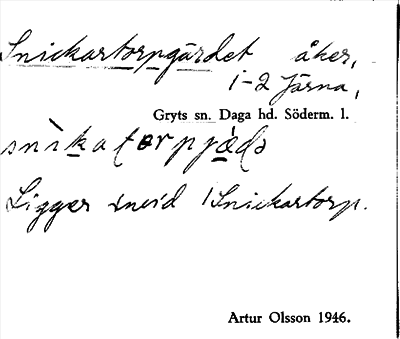 Snickartorpgärdet åker,
1-2 Järna,
Gryts sn. Daga hd. Söderm. l.
Ligger invid Snickartorp.
Artur Olsson 1946.